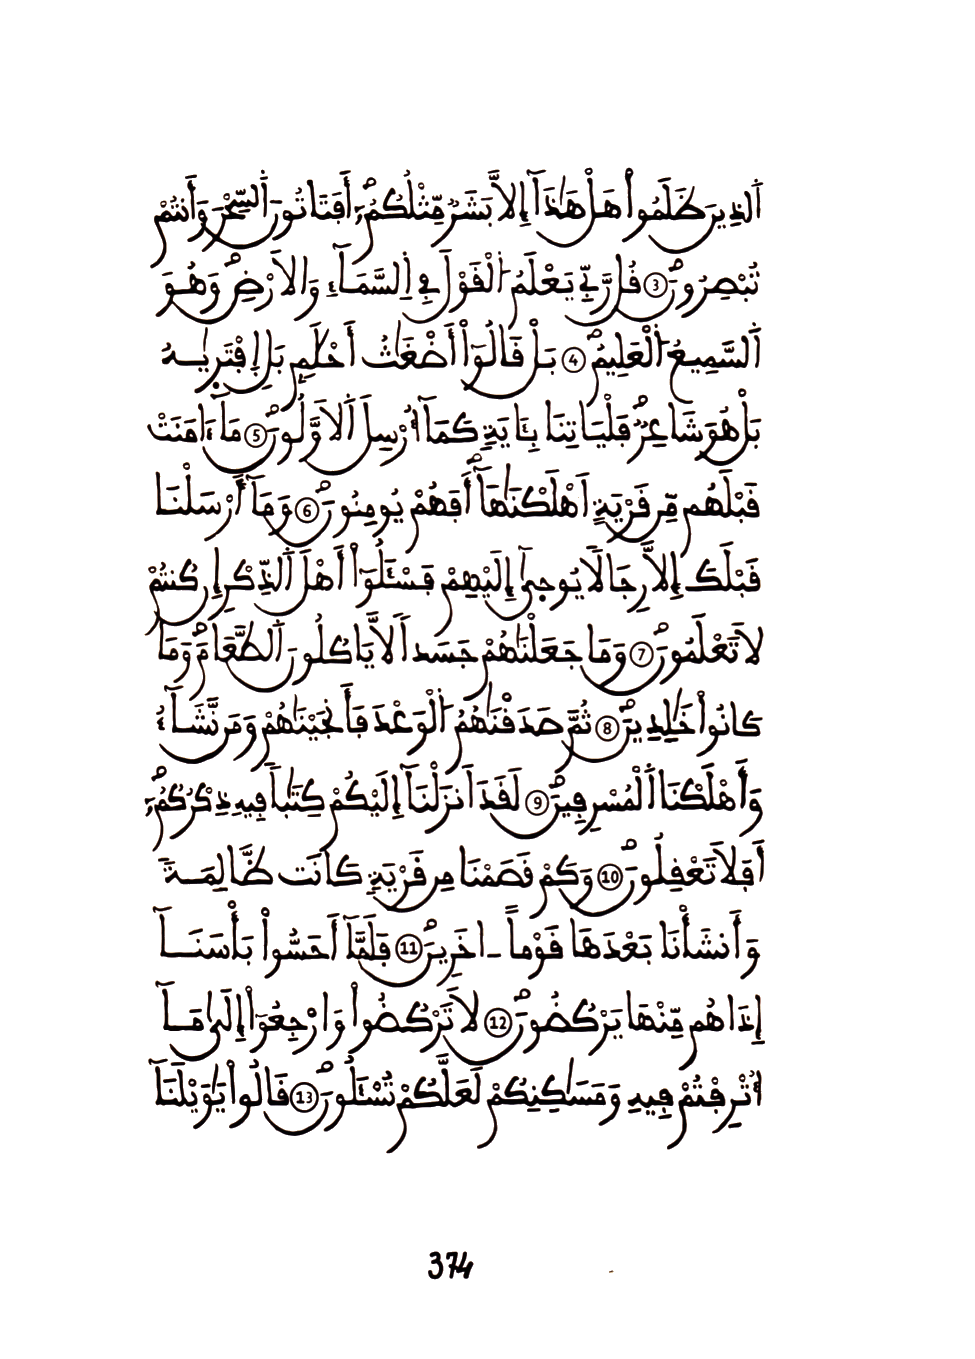 اَ۬لذِينَ ظَلَمُواْ هَلْ هَٰذَآ إِلَّا بَشَرٞ مِّثْلُكُمُۥٓ أَفَتَاتُونَ اَ۬لسِّحْرَ وَأَنتُمْ
تُبْصِرُونَۖ 3 قُل رَّبِّے يَعْلَمُ اُ۬لْقَوْلَ فِے اِ۬لسَّمَآءِ وَالَارْضِۖ وَهُوَ
اَ۬لسَّمِيعُ اُ۬لْعَلِيمُۖ 4 بَلْ قَالُوٓاْ أَضْغَٰثُ أَحْلَٰمِۢ بَلِ اِ۪فْتَر۪يٰهُ
بَلْ هُوَ شَاعِرٞ فَلْيَاتِنَا بِـَٔايَةٖ كَمَآ أُرْسِلَ اَ۬لَاوَّلُونَۖ 5 مَآ ءَامَنَتْ
قَبْلَهُم مِّن قَرْيَةٍ اَهْلَكْنَٰهَآۖ أَفَهُمْ يُومِنُونَۖ 6 وَمَآ أَرْسَلْنَا
قَبْلَكَ إِلَّا رِجَالٗا يُوح۪يٰٓ إِلَيْهِمْ فَسْـَٔلُوٓاْ أَهْلَ اَ۬لذِّكْرِ إِن كُنتُمْ
لَا تَعْلَمُونَۖ 7 وَمَا جَعَلْنَٰهُمْ جَسَداٗ لَّا يَاكُلُونَ اَ۬لطَّعَامَۖ وَمَا
كَانُواْ خَٰلِدِينَۖ 8 ثُمَّ صَدَقْنَٰهُمُ اُ۬لْوَعْدَ فَأَنجَيْنَٰهُمْ وَمَن نَّشَآءُ
وَأَهْلَكْنَا اَ۬لْمُسْرِفِينَۖ 9 لَقَدَ اَنزَلْنَآ إِلَيْكُمْ كِتَٰباٗ فِيهِ ذِكْرُكُمُۥٓۖ
أَفَلَا تَعْقِلُونَۖ 10 وَكَمْ قَصَمْنَا مِن قَرْيَةٖ كَانَت ظَّالِمَةٗ
وَأَنشَأْنَا بَعْدَهَا قَوْماً ـ اخَرِينَۖ 11 فَلَمَّآ أَحَسُّواْ بَأْسَنَآ
إِذَا هُم مِّنْهَا يَرْكُضُونَۖ 12 لَا تَرْكُضُواْ وَارْجِعُوٓاْ إِلَىٰ مَآ
أُتْرِفْتُمْ فِيهِ وَمَسَٰكِنِكُمْ لَعَلَّكُمْ تُسْـَٔلُونَۖ 13 قَالُواْ يَٰوَيْلَنَآ
374